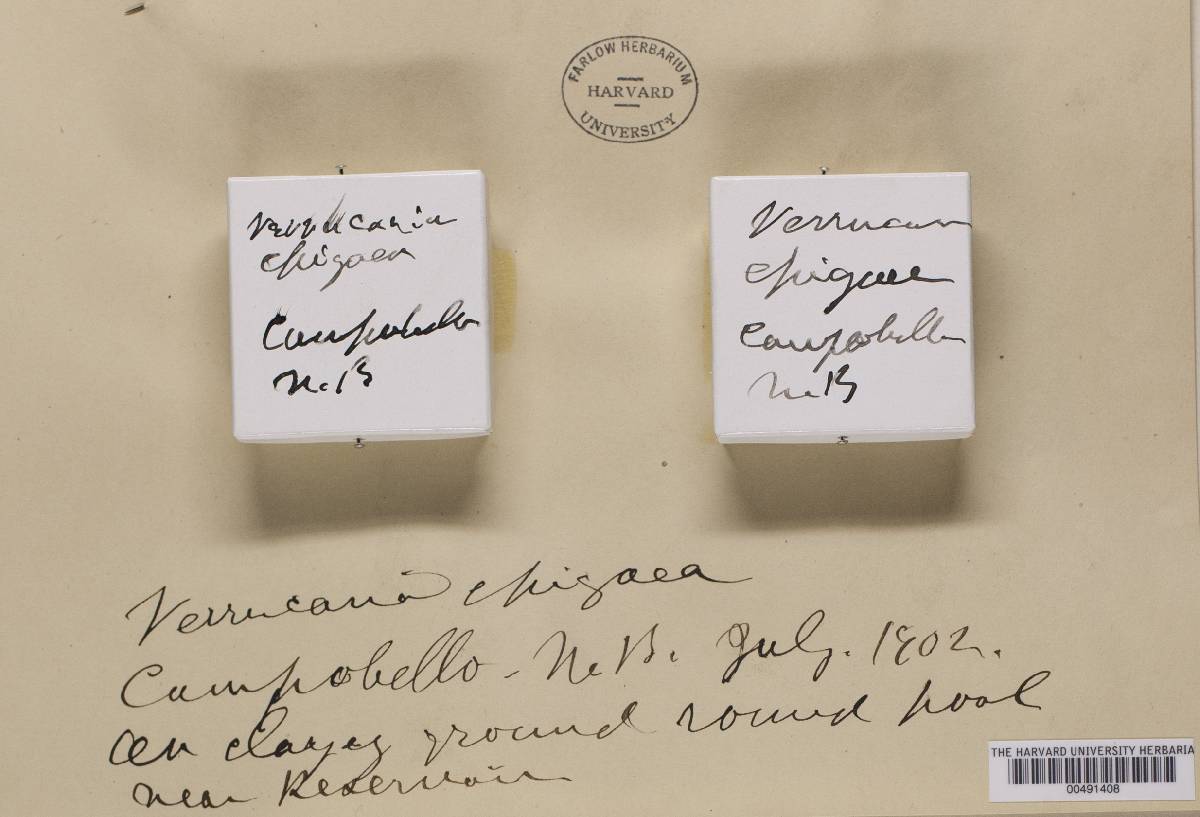 FARLOW HERBARIUM
HARVARD
UNIVERSITY
Verrucaria
epigaea
Campobello
N.B
Verrucari
epigaea
Campobello
N.B
Verrucaria epigaea
Campobello - N.B. July. 1902.
On clayey ground round pool
near Reservoir
THE HARVARD UNIVERSITY HERBARIA
00491408